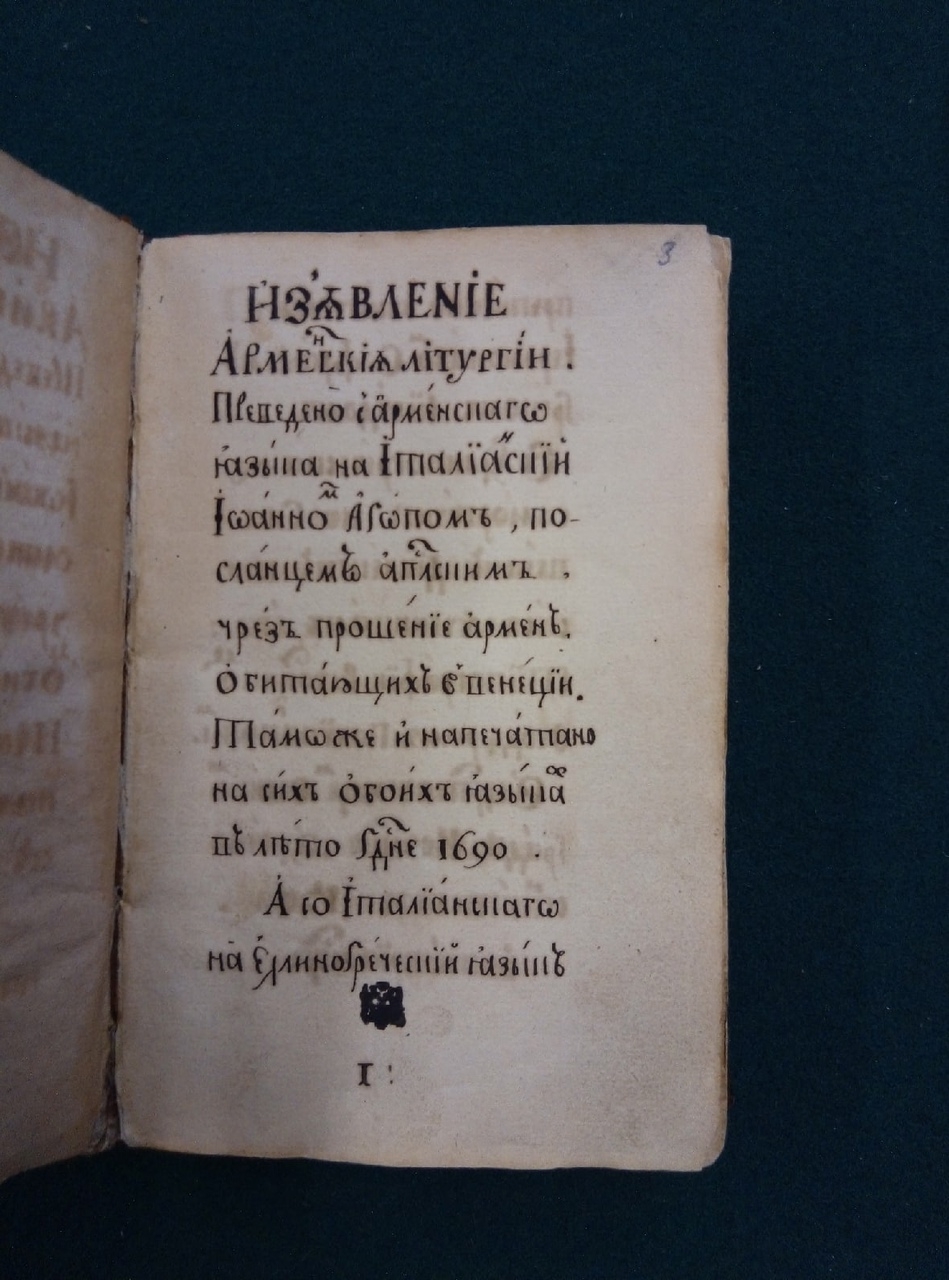 3
И҆з̾ѧвленїе
Арме́нскїѧ літургі́и .
Преведено с̾ а҆рме́нскагѡ
ꙗзы́ка на І҆талїа́нскїй
І҆ѡа́нномъ А҆гѡпомъ , по-
сла́нцемъ а҆пⷭ҇лскимъ .
чре́зъ проше́нїе а҆рме́нъ .
Ѻ҆бита́ющихъ в̾ вене́цїи .
Та́мѡже и҆ напеча́тано
на си́хъ ѻ҆бои́хъ ꙗзы́кахъ
въ лѣто гдⷭ҇не 1690 .
А со І҆талїа́нскагѡ
на Є҆ллиногре́ческїй ꙗзы́къ
I :